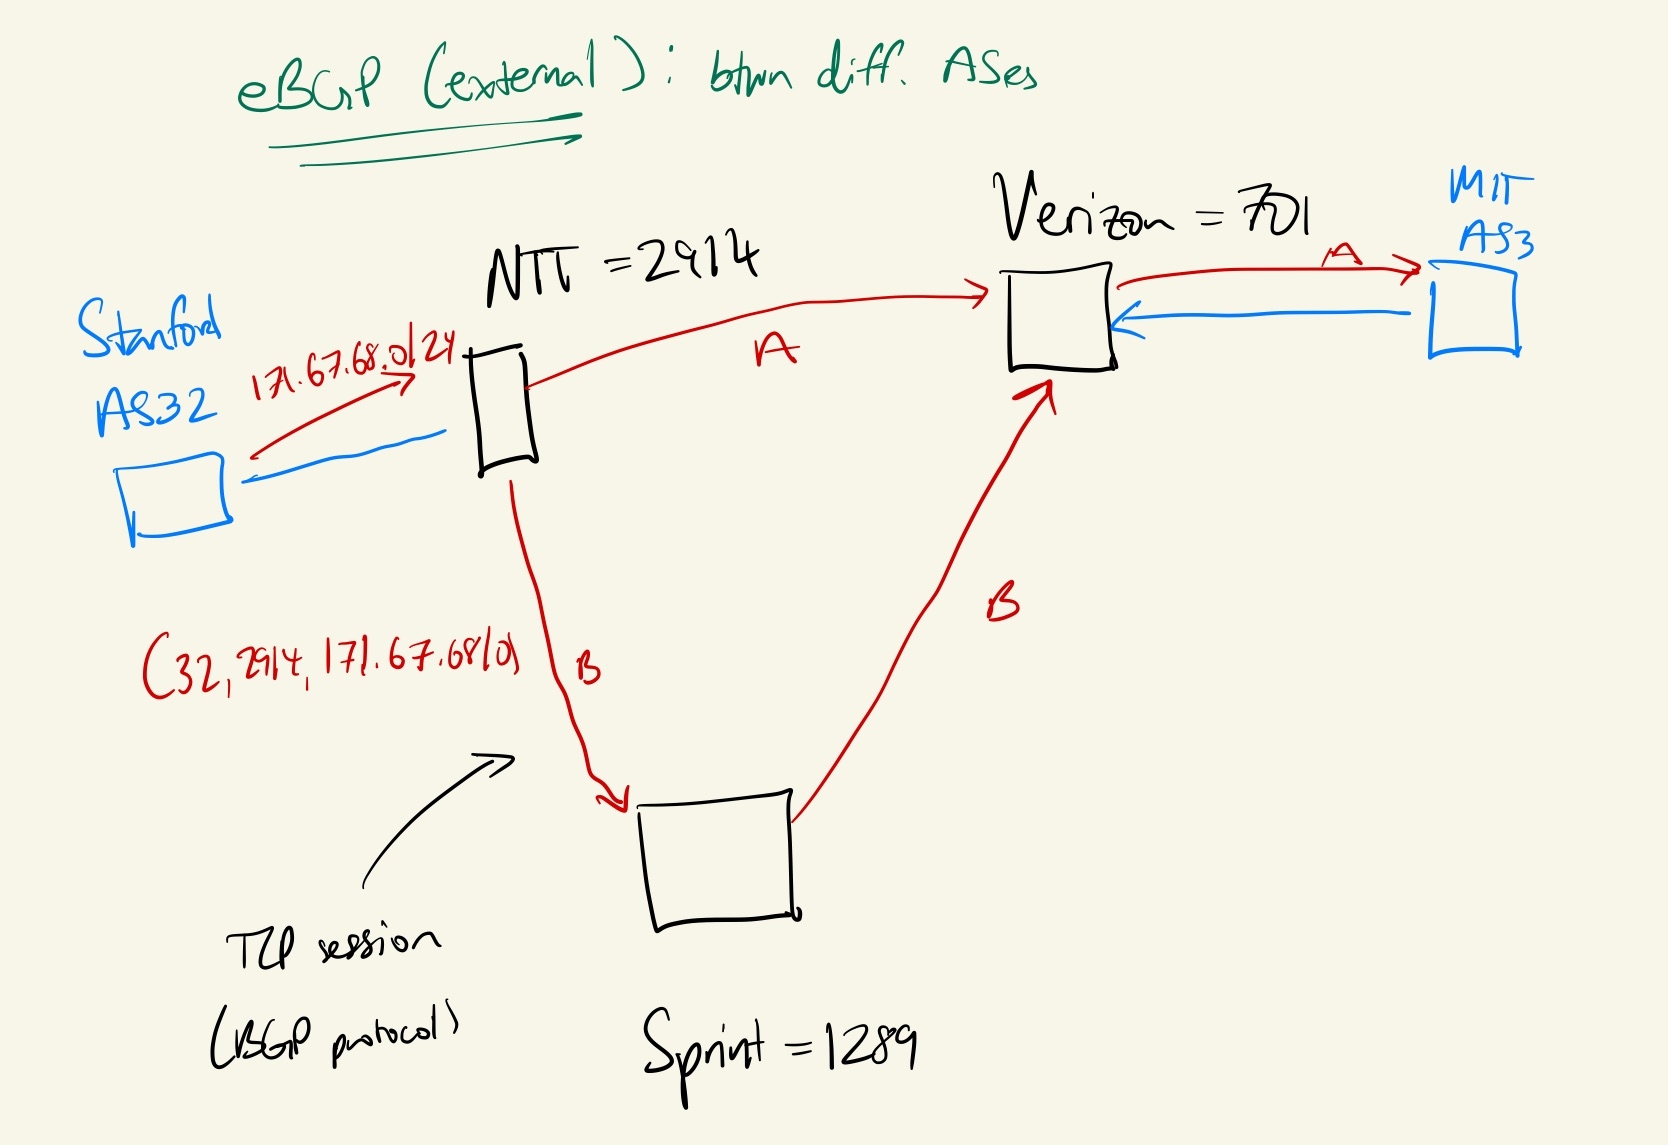 eBGP (external): btwn diff. ASes
MIT
AS3
Verizon = 701
NTT = 2914
A
Stanford
AS32
171.67.68.0/24
A
B
(32, 2914, 171.67.68/0)
B
TCP session
(BGP protocol)
Sprint = 1289